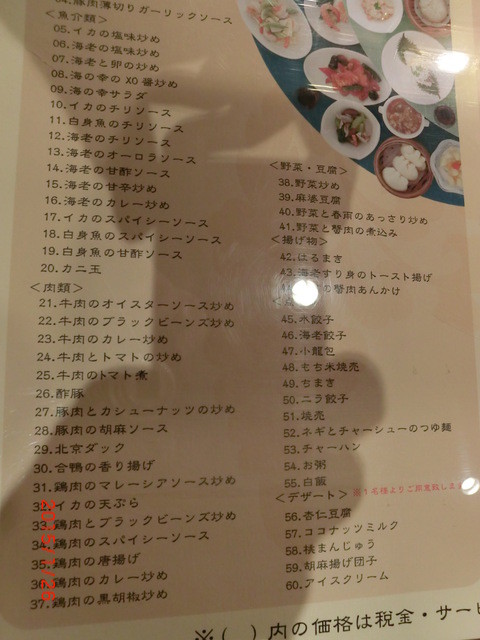 04.豚肉薄切りガーリックソース
＜魚介類＞
05.イカの塩味炒め
06.海老の塩味炒め
07.海老と卵の炒め
08.海の幸のXO醤炒め
09.海の幸サラダ
10.イカのチリソース
11.白身魚のチリソース
12.海老のチリソース
13.海老のオーロラソース
14.海老の甘酢ソース
15.海老の甘辛炒め
16.海老のカレー炒め
17.イカのスパイシーソース
18.白身魚のスパイシーソース
19.白身魚の甘酢ソース
20.カニ玉
＜肉類＞
21.牛肉のオイスターソース炒め
22.牛肉のブラックビーンズ炒め
23.牛肉のカレー炒め
24.牛肉とトマトの炒め
25.牛肉のトマト煮
26.酢豚
27.豚肉とカシューナッツの炒め
28.豚肉の胡麻ソース
29.北京ダック
30.合鴨の香り揚げ
31.鶏肉のマレーシアソース炒め
32.イカの天ぷら
33.鶏肉とブラックビーンズ炒め
34.鶏肉のスパイシーソース
35.鶏肉の唐揚げ
36.鶏肉のカレー炒め
37.鶏肉の黒胡椒炒め
＜野菜・豆腐＞
38.野菜炒め
39.麻婆豆腐
40.野菜と春雨のあっさり炒め
41.野菜と蟹肉の煮込み
＜揚げ物＞
42.はるまき
43.海老すり身のトースト揚げ
の蟹肉あんかけ
45.水餃子
46.海老餃子
47.小龍包
48.もち米焼売
49.ちまき
50.ニラ餃子
51.焼売
52.ネギとチャーシューのつゆ麺
53.チャーハン
54.お粥
55.白飯
＜デザート＞
56.杏仁豆腐
57.ココナッツミルク
58.桃まんじゅう
59.胡麻揚げ団子
60.アイスクリーム
※( )内の価格は税金・サービ